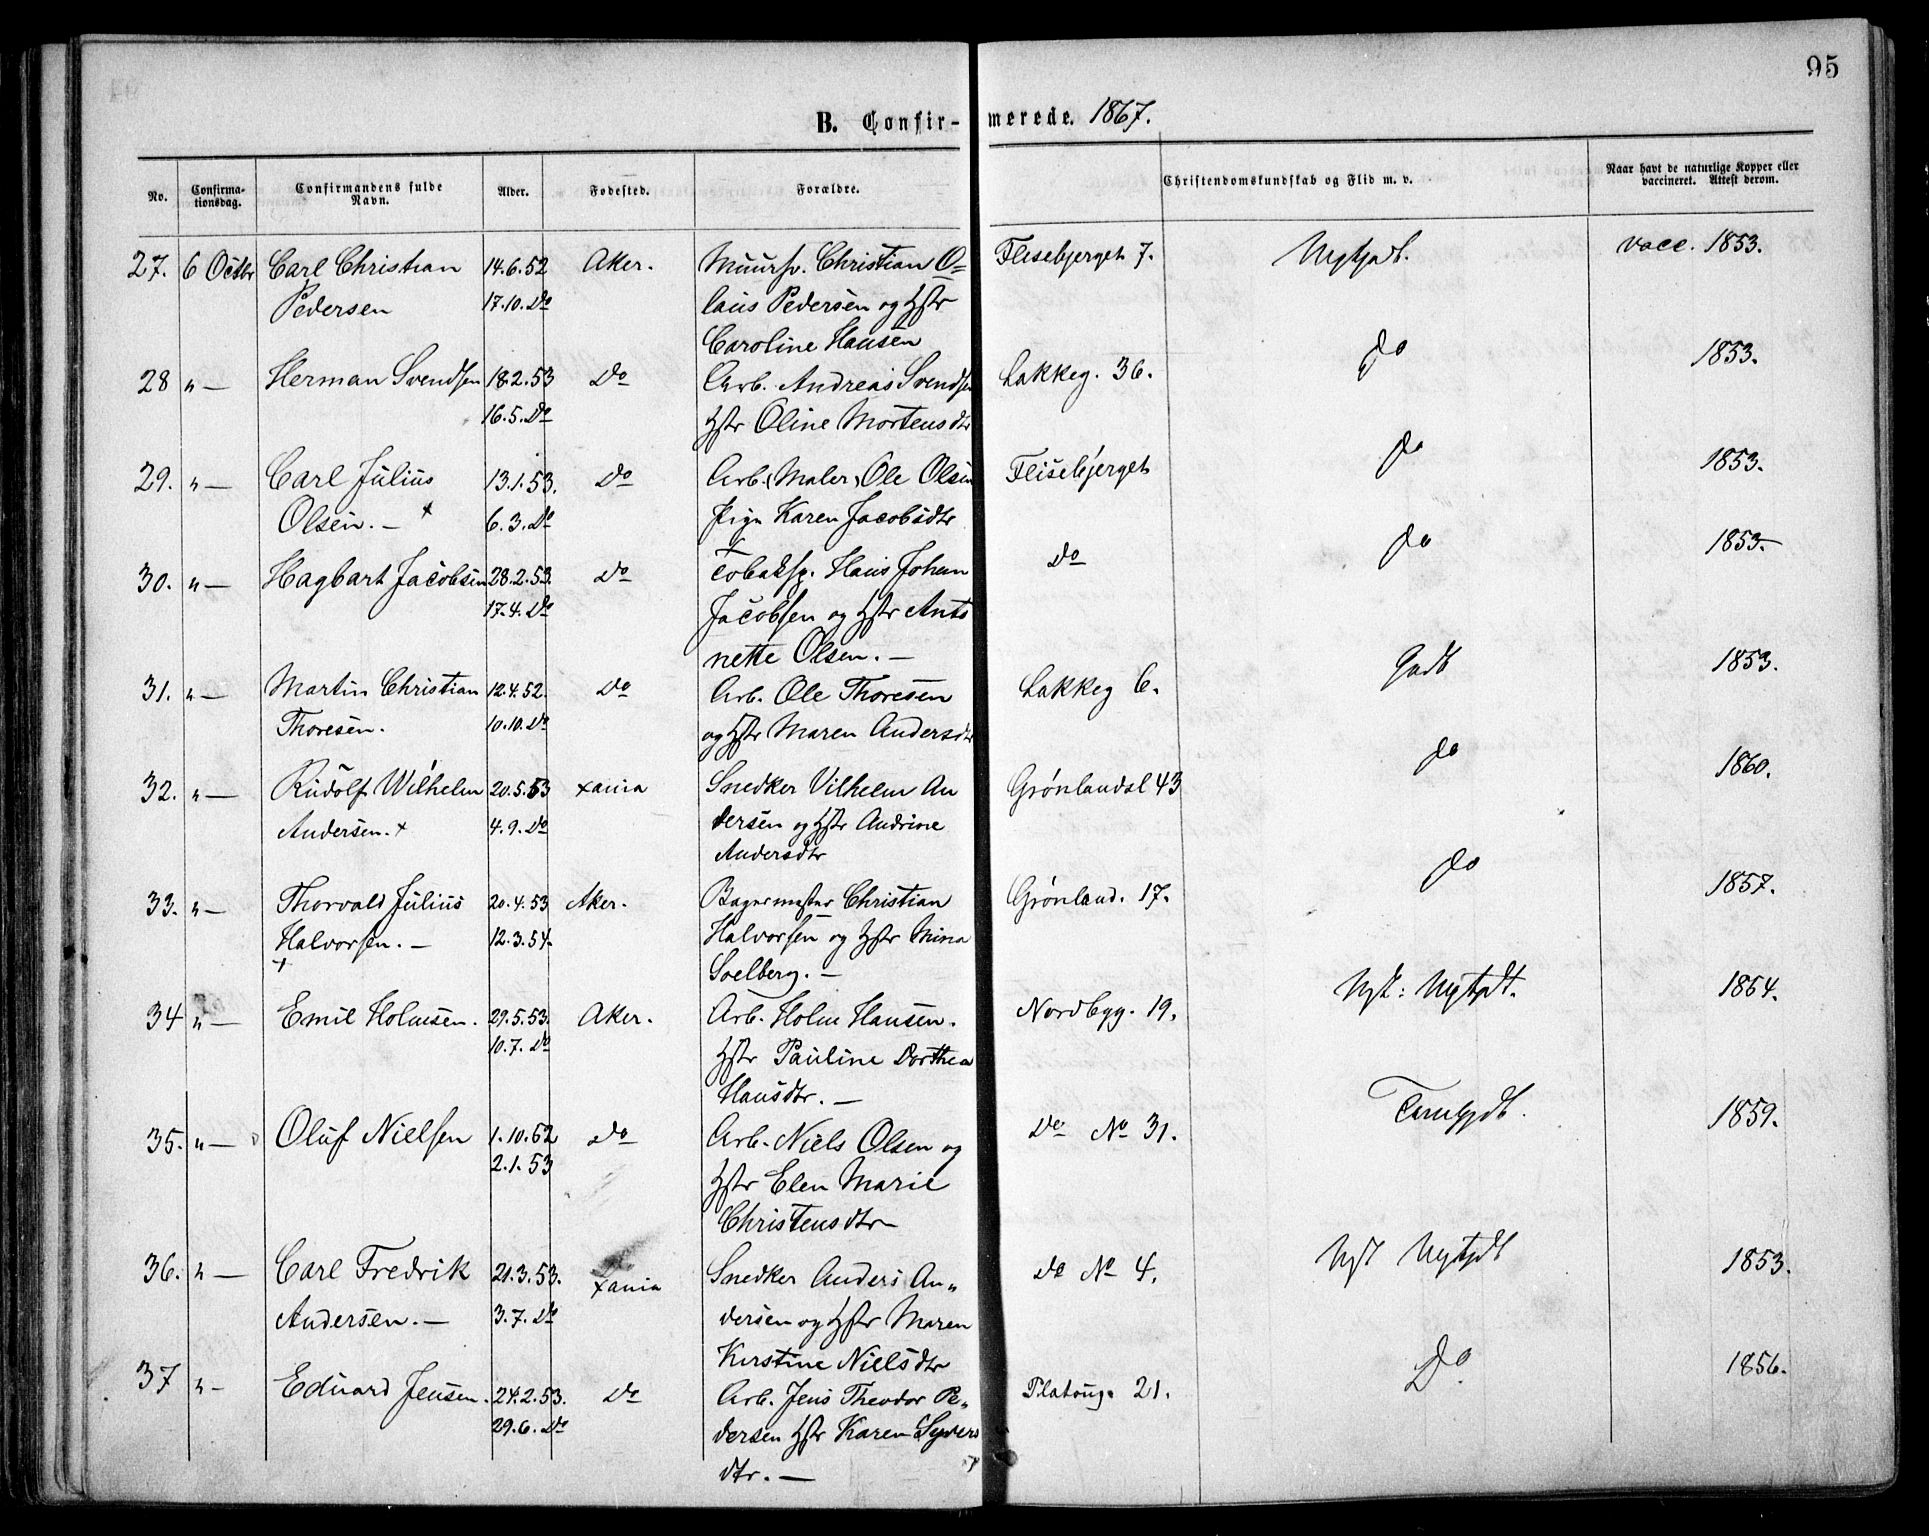 95
B. Confir- merede. 1867.
No.
Confirma-
tionsdag.
Confirmandens fulde
Navn.
Alder.
Fødested.
Forældre.
Christendomskundskab og Flid m. v.
Naar havt de naturlige Kopper eller
vaccineret. Attest derom.
27. 6 Octbr Carl Christian 14.6.52 Aker. Muursv. Christian O= Flisebjerget 7. Mgtgdt. vacc. 1853.
Pedersen 17.10. Do laus Pedersen og Hstr
Caroline Hansen
28 " — Herman Svendsen 18.2.53 Do Arb. Andreas Svendsen Lakkeg. 36. do 1853.
16.5. Do Hstr Oline Mortensdtr
29. " — Carl Julius 13.1.53. Do Arb. (Maler) Ole Olsen Flisebjerget do 1853.
Olsen. — + 6.3. Do Pige Karen Jacobsdtr
30. " — Hagbart Jacobsen 28.2.53. Do Tobaksp. Hans Johan Do do 1853.
17.4. Do Jacobsen og Hstr Anto
nette Olsen. —
31. " — Martin Christian 12.4.52. Do Arb. Ole Thoresen Lakkeg 6. Godt 1853.
Thoresen. 10.10. Do og Hstr Maren Andersdtr
32. " — Rudolf Wilhelm 20.5.53 Xania Snedker Vilhelm An Grønlandsl 43 do 1860.
Andersen. + 4.9. Do dersen og Hstr Andrine
Andersdtr
33. " — Thorvald Julius 20.4.53 Aker. Bagermester Christian Grønland. 17. do 1857.
Halvorsen. — 12.3.54. Halvorsen og Hstr Mina
+ Soelberg. —
34 " — Emil Holmsen. 29.5.53. Aker. Arb. Holm Hansen. Nordbyg. 19. Mgt: Mgtgdt. 1864.
10.7. Do Hstr Pauline Dorthea
Hansdtr. —
35. " — Oluf Nielsen 1.10.52 Do Arb. Niels Olsen og Do No 31. Temlgdt. 1859.
2.1.53 Hstr Elen Marie
Christensdtr
36. " — Carl Fredrik 21.3.53. Xania Snedker Anders An„ Do No 4. Mgt Mgtgdt 1853.
Andersen. — 3.7. Do dersen og Hstr Maren
Kirstine Nielsdtr
37 " - Eduard Jensen. 24.2.53. Do Arb. Jens Theodor Pe„ Platoug. 21. Do 1856.
29.6. Do dersen Hstr Karen Syvers
dtr. —